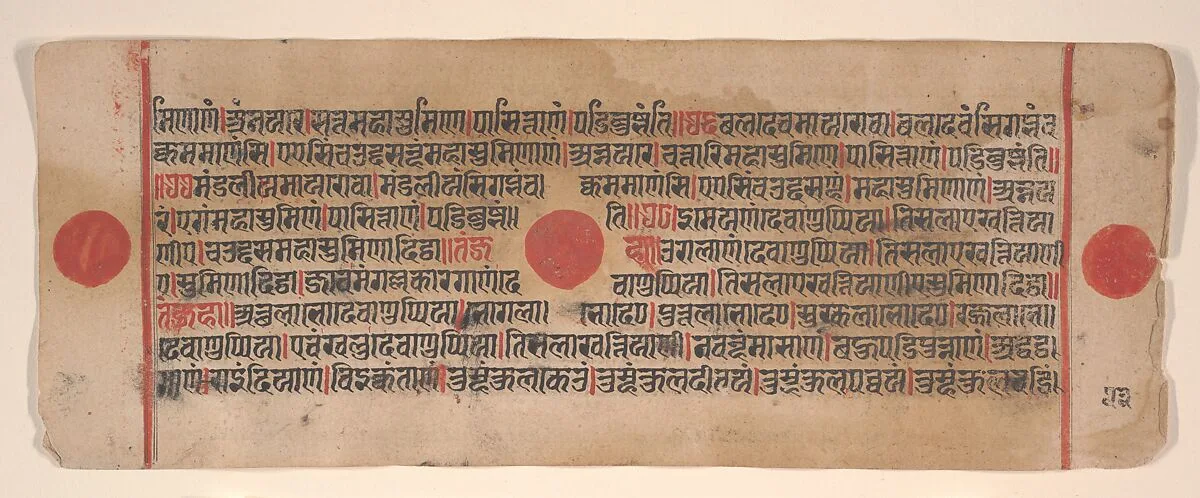 मिणाणं।अन्नयरे।सत्तमहासुमिणे।पासित्ताणं।पडिबुज्झंति॥७६बलदेवमायरोवा।बलदेवंसिगब्भंव
क्कममाणंसि।एएसिंचउद्दसण्हंमहासुमिणाणं।अन्नयरे।चत्तारिमहासुमिणे।पासित्ताणं।पडिबुज्झंति॥
॥७७मंडलीयमायरोवा।मंडलीयंसिगब्भंव क्कममाणंसि।एएसिंचउद्दसण्हं।महासुमिणाणं।अन्नय
रं।एगंमहासुमिणं।पासित्ताणं।पडिबुज्झं ति॥७८।इमेयाणंदेवाणुप्पिया।तिसलाएखत्तिया
णीए।चउद्दसमहासुमिणादिट्ठा॥ उरालाणंदेवाणुप्पिया।तिसलाएखत्तियाणी
ए।सुमिणादिट्ठा।जावमंगल्लकारगाणंदे वाणुप्पिया।तिसलाएखत्तियाणीएसुमिणादिट्ठा॥
तंजहा॥अत्थलाभोदेवाणुप्पिया।भोगला भोदे०।पुत्तलाभोदे०।सुक्खलाभोदे०।रज्जलाभो।
देवाणुप्पिया।एवंखलुदेवाणुप्पिया।तिसलाखत्तियाणी।नवण्हंमासाणं।बहुपडिपुन्नाणं।अद्धट्ठ
माणं।राइंदियाणं।विइक्कंताणं।तुम्हंकुलकेउं।तुम्हंकुलदीवयं।तुम्हंकुलपव्वयं।तुम्हंकुलवडिं